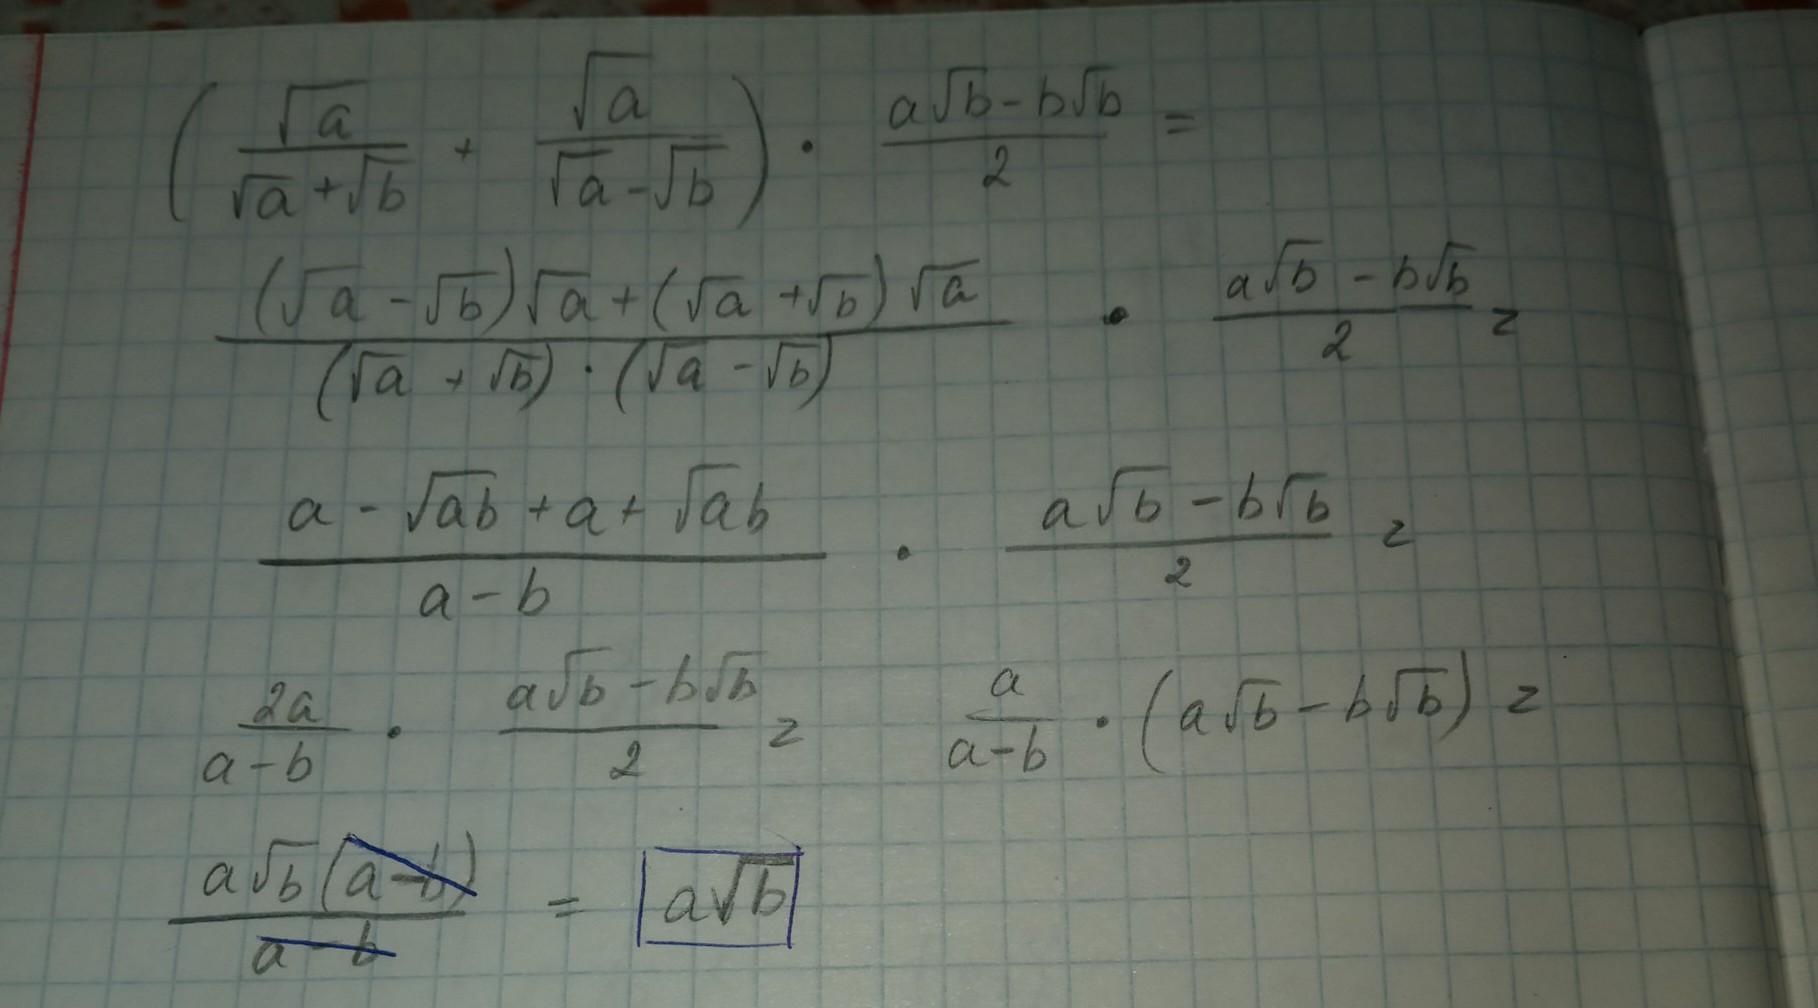 (√a / (√a + √b) + √a / (√a - √b)) · (a√b - b√b) / 2 =
((√a - √b)√a + (√a + √b)√a) / ((√a + √b) · (√a - √b)) · (a√b - b√b) / 2 =
(a - √ab + a + √ab) / (a - b) · (a√b - b√b) / 2 =
2a / (a - b) · (a√b - b√b) / 2 = a / (a - b) · (a√b - b√b) =
a√b(a - b) / (a - b) = a√b